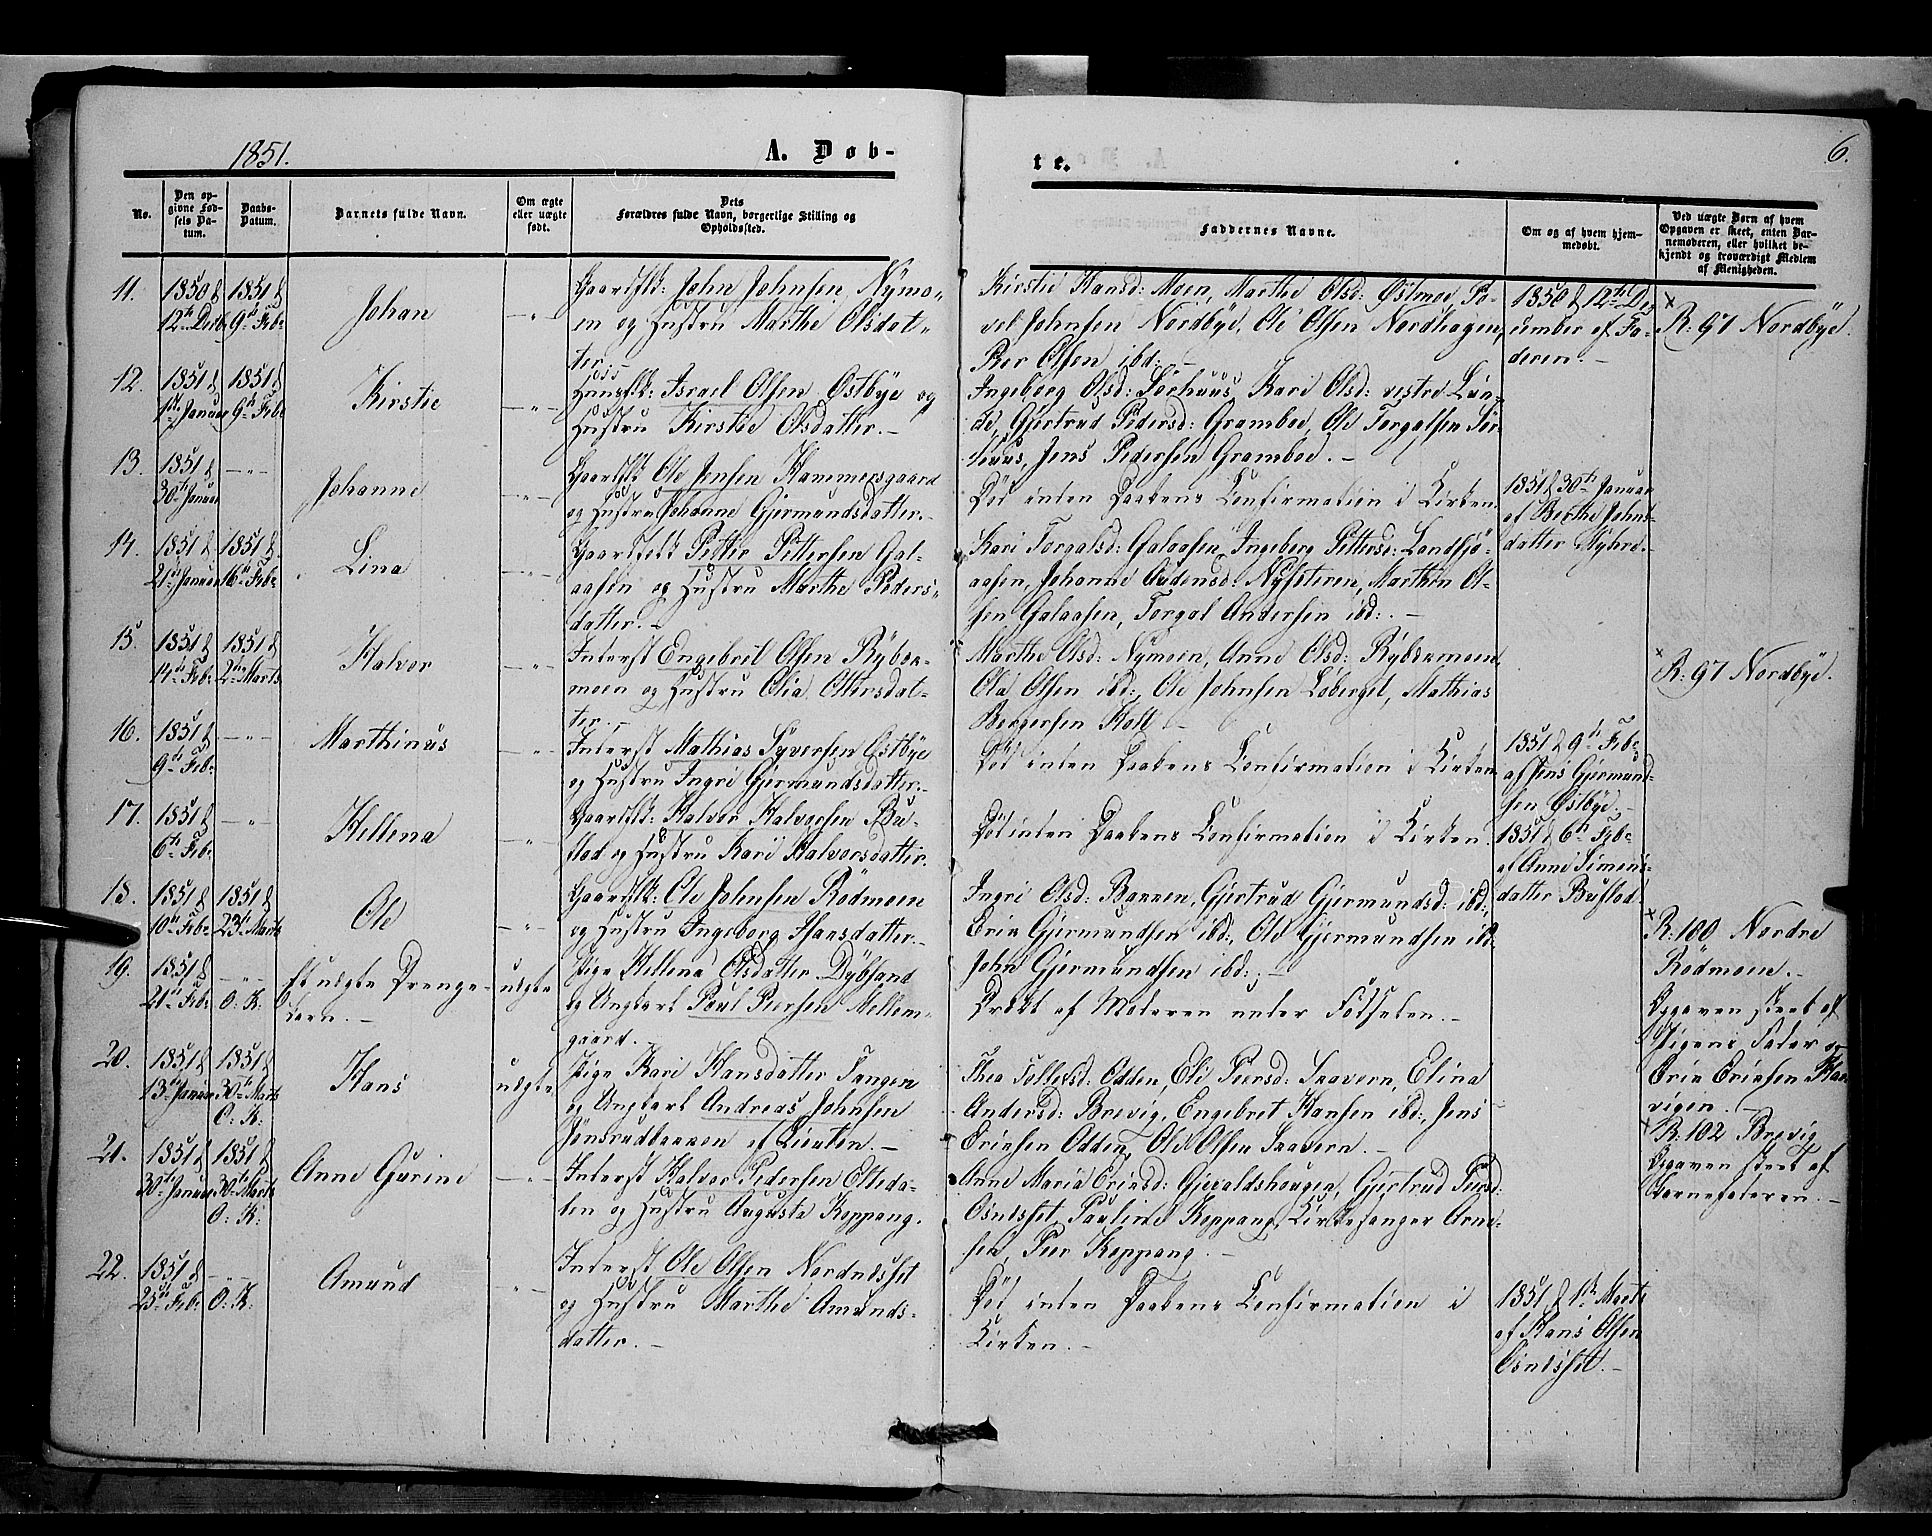 1851.
A. Døb-
te.
6.
No.
Den op-
givne Fød-
sels Da-
tum.
Daabs-
Datum.
Barnets fulde Navn.
Om ægte
eller uægte
født.
Dets
Forældres fulde Navn, borgerlige Stilling og
Opholdssted.
Faddernes Navne.
Om og af hvem hjem-
medøbt.
Ved uægte Børn af hvem
Opgaven er skeet, enten Bar-
nemoderen, eller hvilket be-
kjendt og troværdigt Medlem
af Menigheden.
11.
1850 d
12te Decbr
1851 d
9de Febr
Johan
— " —
Gaardsk: John Johnsen Nymo-
en og Hustru Marthe Olsdat-
ter
Kirstie Hansd: Moen, Marthe Olsd: Østmoe, Po-
vel Johnsen Nordbye, Ole Olsen Nordhagen,
Peer Olsen ibd: —
1850 d 12te Dec
ember af Fa-
deren. —
R: 97 Nordbye.
12.
1851 d
1ste Januar
1851 d
9de Febr
Kirstie
— " —
Huusfsk: Israel Olsen Østbye og
Hustru Kirstie Olsdatter. —
Ingeborg Olsd: Sørhuus, Kari Olsd: vestre Lun-
de, Gjertrud Pedersd: Gramboe, Ole Torgalsen Sør-
huus, Jens Pedersen Gramboe. —
13.
1851 d
30te Januar
— " —
Johanne
— " —
Gaardfsk: Ole Jensen Hammersgaard
og Hustru Johanne Gjermundsdatter. —
Død inden Daabens Confirmation i Kirken.
1851 d 30te Januar
af Berthe Johns-
datter Myhre. —
14.
1851 d
21de Januar
1851 d
16de Febr
Lina
— " —
Gaardfsk: Petter Pettersen Gal-
aasen og Hustru Marthe Peders-
datter. —
Kari Torgalsd: Galaasen, Ingeborg Petters: Landsjø-
aasen, Johanne Audensd: Nysæteren, Marthin Ol-
sen Galaasen, Torgal Andersen ibd: . —
15.
1851 d
14de Febr
1851 d
2den Marts
Halvor
— " —
Inderst Engebril Olsen Rybse-
moen og Hustru Olia Oltersdat-
ter. —
Marthe Olsd: Nymoen, Anne Olsd: Rybsemoen
Ola Olsen ibd:, Ole Johnsen Løberget, Mathias
Bergersen Koll —
R: 97 Nordbye.
16.
1851 d
9de Febr
— " —
Marthinus
— " —
Inderst Mathias Syversen Østbye
og Hustru Ingri Gjermundsdatter. —
Død inden Daabens Confirmation i Kirken
1851 d 9de Febr
af Jens Gjermund-
sen Østbye. —
17.
1851 d
6te Febr
— " —
Hellena
— " —
Gaardfsk: Halvor Halvorsen Bu-
stad og Hustru Kari Halvorsdatter.
Død inden Daabens Confirmation i Kirken.
1851 d 6te Febr
af Anne Simens-
datter Bustad.
18.
1851 d
10de Febr
1851 d
23de Marts
Ole
— " —
Gaardfsk: Ole Johnsen Rødmoen
og Hustru Ingeborg Hansdatter. —
Ingri Olsd: Bakken, Gjertrud Gjermundsd: ibd:,
Erik Gjermundsen ibd:, Ole Gjermundsen ibd:
John Gjermundsen ibd: . —
R: 100 Nordre
Rødmoen. —
19.
1851 d
21de Febr
— " —
O: K:
Et uægte Drenge-
barn. —
uægte
Pige Hellena Olsdatter Dybsand
og Ungkarl Poul Peersen Mellem-
gaard. —
Dræbt af Moderen under Fødselen. —
Opgaven skeet af
Pigens Fader og
Erik Eriksen Haa-
vigen. —
20.
1851 d
13de Januar
1851 d
30te Marts
O: K:
Hans
uægte
Pige Kari Hansdatter Tangen
og Ungkarl Andreas Johnsen
Jonsrudbakken af Lieuten. —
Thea Tollefsd: Odden, Eli Peersd: Saavern, Elina
Andersd: Brevig, Engebret Hansen ibd:, Jens
Eriksen Odden, Ole Olsen Saavern. —
R: 102 Brevig
Opgaven skeet af
Barnefaderen. —
21.
1851 d
30te Januar
1851 d
30te Marts
O: K:
Anne Gurine
— " —
Inderst Halvor Pedersen Elteda-
len og Hustru Augusta Koppang.
Anne Maria Eriksd: Gjeraldshougen, Gjertrud Peersd:
Osneset, Pauline Koppang, Kirkesanger Arne-
sen, Peer Koppang. —
22.
1851 d
25de Febr
— " —
O: K:
Amund
— " —
Inderst Ole Olsen Nordneset
og Hustru Marthe Amunds-
datter. —
Død inden Daabens Confirmation i
Kirken. —
1851 d 1ste Marts
af Hans Olsen
Osneset. —